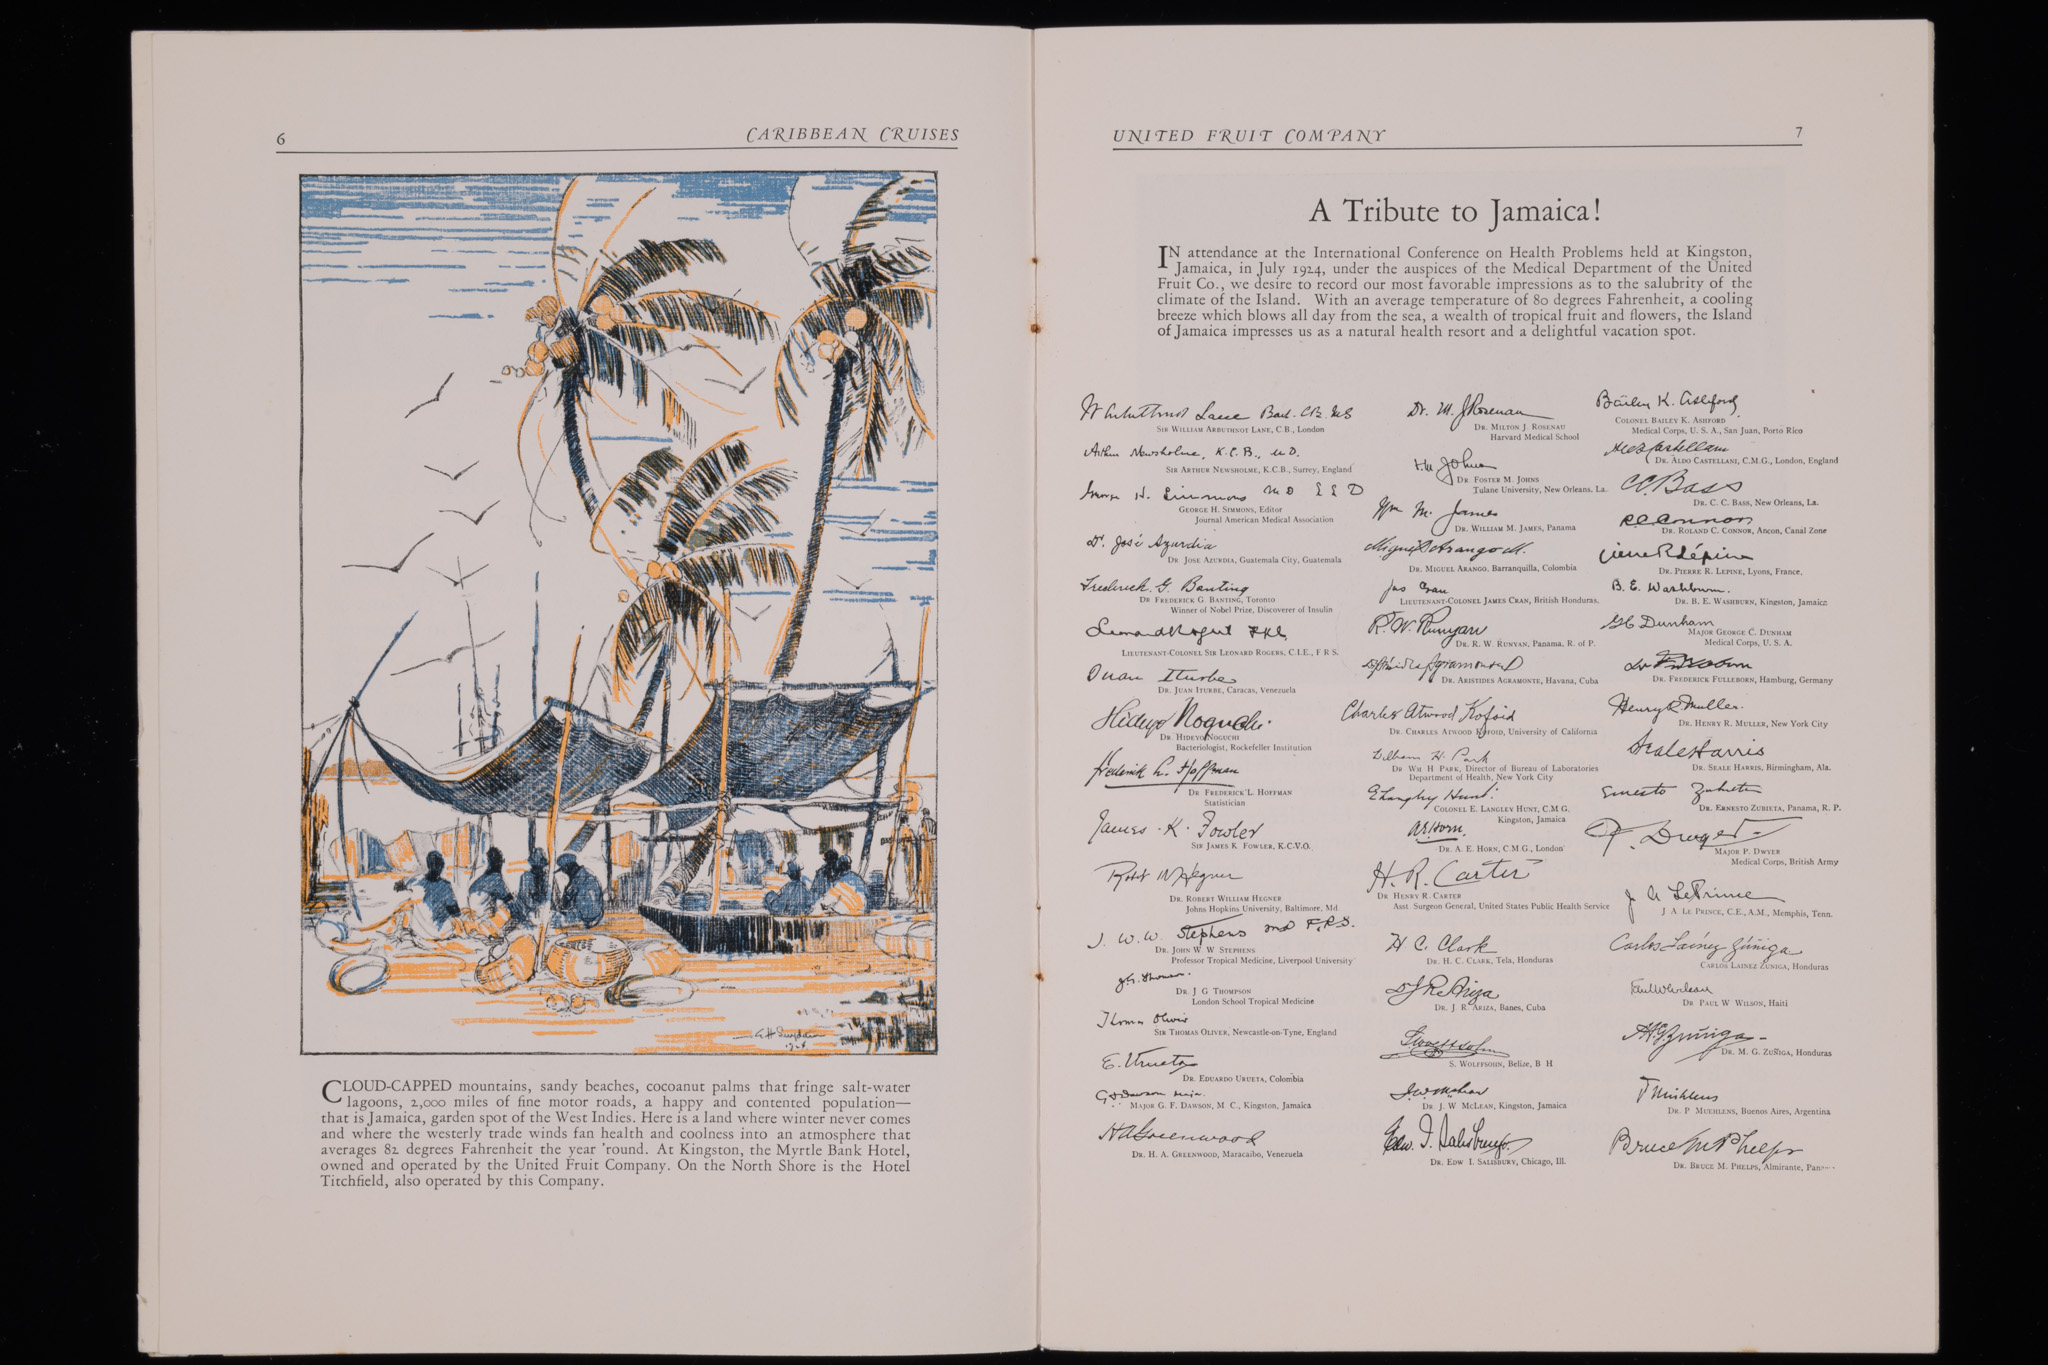 6
CARIBBEAN CRUISES
CLOUD-CAPPED mountains, sandy beaches, cocoanut palms that fringe salt-water
lagoons, 2,000 miles of fine motor roads, a happy and contented population—
that is Jamaica, garden spot of the West Indies. Here is a land where winter never comes
and where the westerly trade winds fan health and coolness into an atmosphere that
averages 82 degrees Fahrenheit the year 'round. At Kingston, the Myrtle Bank Hotel,
owned and operated by the United Fruit Company. On the North Shore is the Hotel
Titchfield, also operated by this Company.
UNITED FRUIT COMPANY
7
A Tribute to Jamaica!
IN attendance at the International Conference on Health Problems held at Kingston,
Jamaica, in July 1924, under the auspices of the Medical Department of the United
Fruit Co., we desire to record our most favorable impressions as to the salubrity of the
climate of the Island. With an average temperature of 80 degrees Fahrenheit, a cooling
breeze which blows all day from the sea, a wealth of tropical fruit and flowers, the Island
of Jamaica impresses us as a natural health resort and a delightful vacation spot.
Wm Arbuthnot Lane Bart. C.B. M.S
SIR WILLIAM ARBUTHNOT LANE, C.B., London
Arthur Newsholme, K.C.B., M.D.
SIR ARTHUR NEWSHOLME, K.C.B., Surrey, England
George H. Simmons M D L L D
GEORGE H. SIMMONS, Editor
Journal American Medical Association
Dr. José Azurdia
DR. JOSE AZURDIA, Guatemala City, Guatemala
Frederick G. Banting
DR FREDERICK G. BANTING, Toronto
Winner of Nobel Prize, Discoverer of Insulin
Leonard Rogers FRS
LIEUTENANT-COLONEL SIR LEONARD ROGERS, C.I.E., F R S.
Juan Iturbe
DR. JUAN ITURBE, Caracas, Venezuela
Hideyo Noguchi
DR. HIDEYO NOGUCHI
Bacteriologist, Rockefeller Institution
Frederick L. Hoffman
DR FREDERICK L. HOFFMAN
Statistician
James K. Fowler
SIR JAMES K FOWLER, K.C.V.O.
Robt W Hegner
DR. ROBERT WILLIAM HEGNER
Johns Hopkins University, Baltimore, Md.
J. W. W. Stephens MD F.R.S.
DR. JOHN W W STEPHENS
Professor Tropical Medicine, Liverpool University
J.G. Thomson
DR. J G THOMPSON
London School Tropical Medicine
Thomas Oliver
SIR THOMAS OLIVER, Newcastle-on-Tyne, England
E. Urueta
DR. EDUARDO URUETA, Colombia
G F Dawson Major.
MAJOR G. F. DAWSON, M. C., Kingston, Jamaica
H A Greenwood
DR. H. A. GREENWOOD, Maracaibo, Venezuela
Dr. M. J Rosenau
DR. MILTON J. ROSENAU
Harvard Medical School
F. M. Johns
DR FOSTER M. JOHNS
Tulane University, New Orleans, La.
Wm M. James
DR. WILLIAM M. JAMES, Panama
Miguel Arango M.
DR. MIGUEL ARANGO, Barranquilla, Colombia
Jas Cran
LIEUTENANT-COLONEL JAMES CRAN, British Honduras.
R. W. Runyan
DR. R. W. RUNYAN, Panama, R. of P.
Dr Aristides Agramonte
DR. ARISTIDES AGRAMONTE, Havana, Cuba
Charles Atwood Kofoid
DR. CHARLES ATWOOD KOFOID, University of California
William H. Park
DR WM H PARK, Director of Bureau of Laboratories
Department of Health, New York City
E Langley Hunt
COLONEL E. LANGLEY HUNT, C.M G.
Kingston, Jamaica
A.E. Horn.
DR. A. E. HORN, C.M G., London
H. R. Carter
DR HENRY R. CARTER
Asst. Surgeon General, United States Public Health Service
H C. Clark
DR. H. C. CLARK, Tela, Honduras
Dr J R. Ariza
DR. J. R. ARIZA, Banes, Cuba
S Wolffsohn
S. WOLFFSOHN, Belize, B H
J. W. McLean
DR J. W McLEAN, Kingston, Jamaica
Edw. I. Salisbury
DR. EDW I. SALISBURY, Chicago, Ill.
Bailey K. Ashford
COLONEL BAILEY K. ASHFORD
Medical Corps, U. S. A., San Juan, Porto Rico
Aldo Castellani
DR. ALDO CASTELLANI, C.M.G., London, England
C.C. Bass
DR. C. C. BASS, New Orleans, La.
R.C. Connor
DR. ROLAND C. CONNOR, Ancon, Canal Zone
Pierre R Lépine
DR. PIERRE R. LEPINE, Lyons, France.
B. E. Washburn.
DR. B. E. WASHBURN, Kingston, Jamaica
G C Dunham
MAJOR GEORGE C. DUNHAM
Medical Corps, U. S. A.
DR. FREDERICK FULLEBORN, Hamburg, Germany
Henry R Muller.
DR. HENRY R. MULLER, New York City
Seale Harris
DR. SEALE HARRIS, Birmingham, Ala.
Ernesto Zubieta
DR. ERNESTO ZUBIETA, Panama, R. P.
P. Dwyer
MAJOR P. DWYER
Medical Corps, British Army
J A Le Prince
J A LE PRINCE, C.E., A.M., Memphis, Tenn.
Carlos Laínez Zúñiga
CARLOS LAINEZ ZUNIGA, Honduras
Paul W Wilson
DR PAUL W WILSON, Haiti
M. G. Zúñiga
DR. M. G. ZUÑIGA, Honduras
P Mühlens
DR. P MUEHLENS, Buenos Aires, Argentina
Bruce M Phelps
DR. BRUCE M. PHELPS, Almirante, Panama